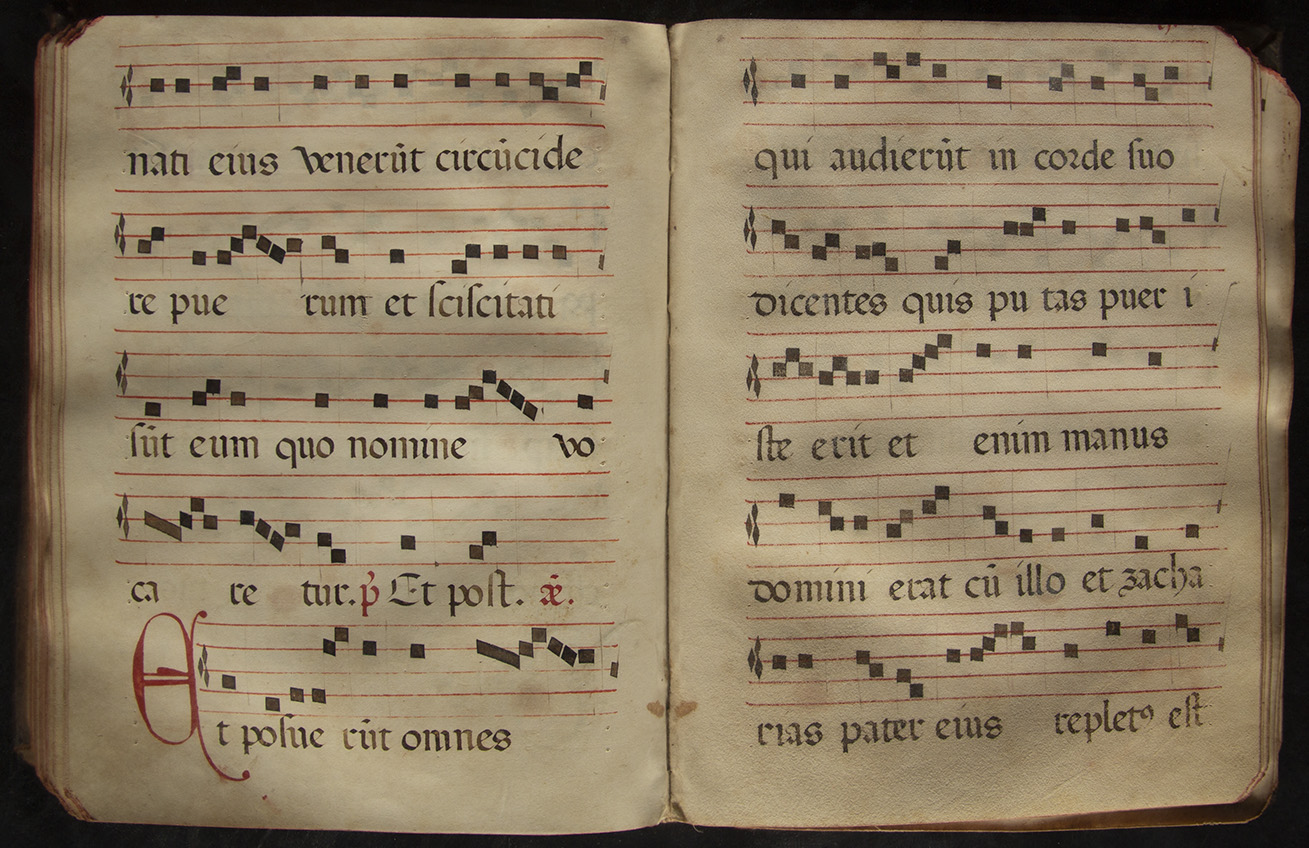 nati eius venerũt circũcide
re pue rum et ſciſcitati
ſũt eum quo nomine vo
ca re tur. p̃ Et poſt. æ̃.
Et poſue rũt omnes
qui audierũt in corde ſuo
dicentes quis pu tas puer i
ſte erit et enim manus
domini erat cũ illo et zacha
rias pater eius repletꝰ eſt